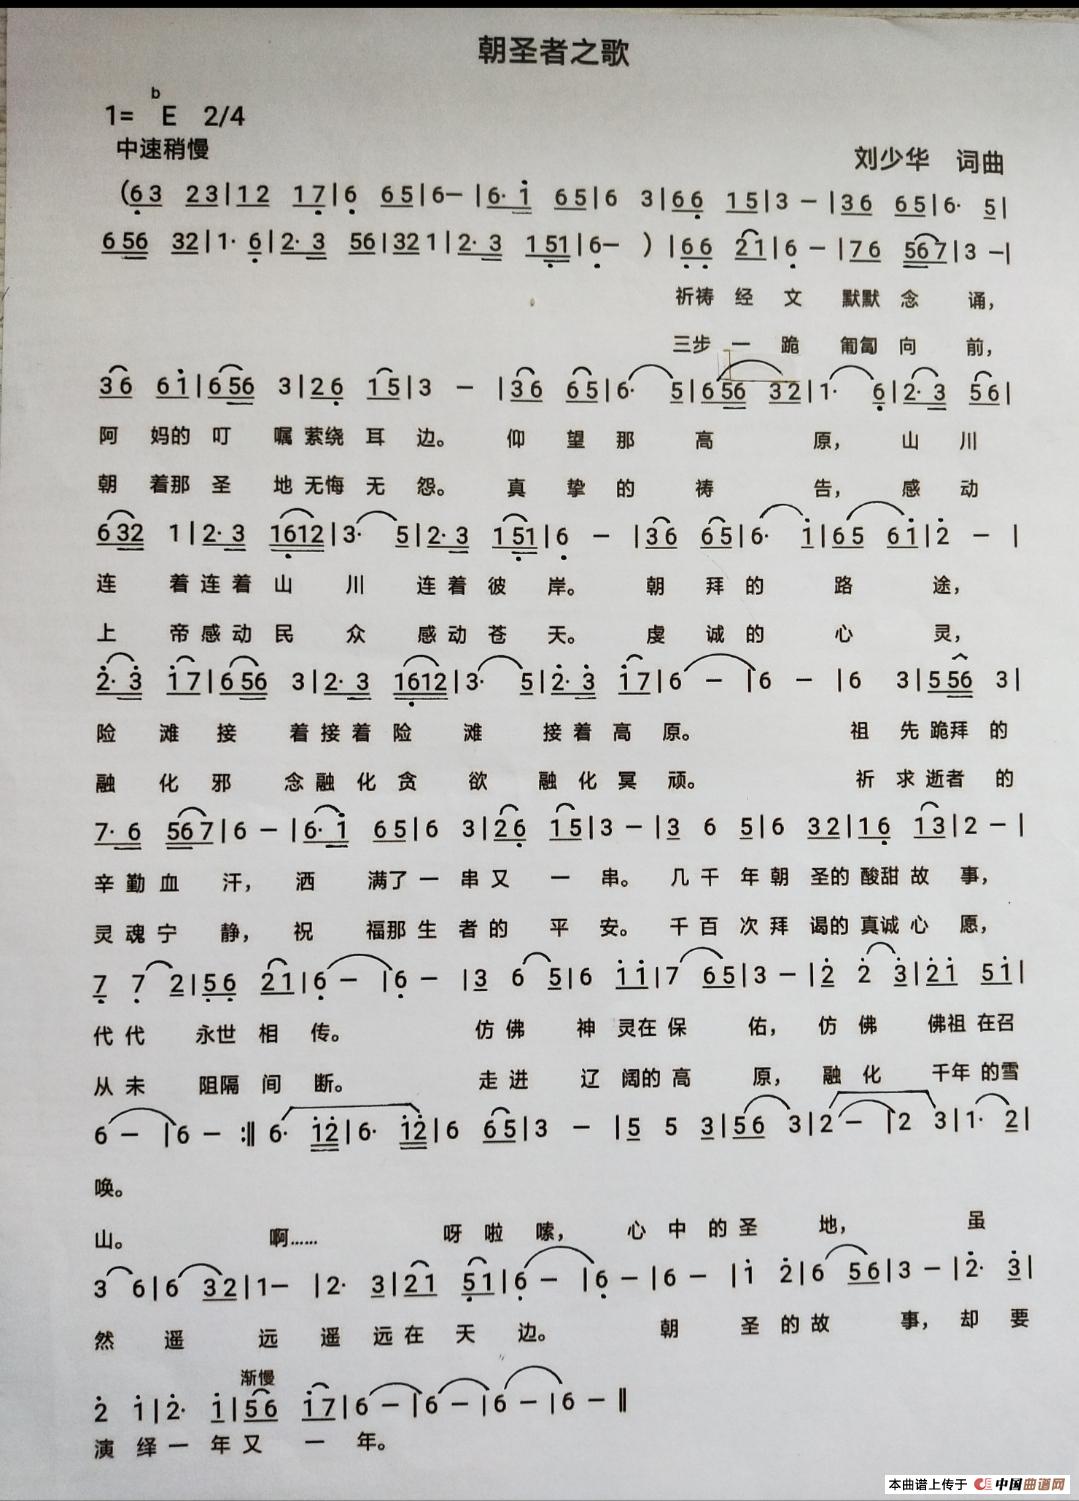 朝圣者之歌
1= bE 2/4
中速稍慢
刘少华 词曲
(6 3 2 3 | 1 2 1 7 | 6 6 5 | 6 — | 6· 1 6 5 | 6 3 | 6 6 1 5 | 3 — | 3 6 6 5 | 6· 5 |
6 56 32 | 1· 6 | 2· 3 56 | 32 1 | 2· 3 1 51 | 6 — ) | 6 6 2 1 | 6 — | 7 6 56 7 | 3 — |
祈祷 经 文 默默 念 诵，
三步 一 跪 匍匐 向 前，
3 6 6 1 | 6 56 3 | 2 6 1 5 | 3 — | 3 6 6 5 | 6· 5 | 6 56 3 2 | 1· 6 | 2· 3 5 6 |
阿 妈的 叮 嘱 萦绕 耳 边。 仰 望 那 高 原， 山 川
朝 着那 圣 地 无悔 无 怨。 真 挚 的 祷 告， 感 动
6 32 1 | 2· 3 1612 | 3· 5 | 2· 3 1 51 | 6 — | 3 6 6 5 | 6· 1 | 6 5 6 1 | 2 — |
连 着 连 着 山 川 连 着 彼 岸。 朝 拜 的 路 途，
上 帝 感 动 民 众 感 动 苍 天。 虔 诚 的 心 灵，
2· 3 1 7 | 6 56 3 | 2· 3 1612 | 3· 5 | 2· 3 1 7 | 6 — | 6 — | 6 3 | 5 56 3 |
险 滩 接 着 接 着 险 滩 接 着 高 原。 祖 先 跪拜 的
融 化 邪 念 融 化 贪 欲 融 化 冥 顽。 祈 求 逝者 的
7· 6 56 7 | 6 — | 6· 1 6 5 | 6 3 | 2 6 1 5 | 3 — | 3 6 5 | 6 3 2 | 1 6 1 3 | 2 — |
辛 勤 血 汗， 洒 满了 一 串 又 一 串。 几 千 年 朝 圣的 酸甜 故 事，
灵 魂 宁 静， 祝 福那 生 者 的 平 安。 千 百 次 拜 谒的 真诚 心 愿，
7 7 2 | 5 6 2 1 | 6 — | 6 — | 3 6 5 | 6 1 1 | 7 6 5 | 3 — | 2 2 3 | 2 1 5 1 |
代 代 永世 相 传。 仿 佛 神 灵在 保 佑， 仿 佛 佛祖 在召
从 未 阻隔 间 断。 走 进 辽 阔的 高 原， 融 化 千年 的雪
6 — | 6 — :‖ 6· 12 | 6· 12 | 6 6 5 | 3 — | 5 5 3 | 5 6 3 | 2 — | 2 3 | 1· 2 |
唤。
山。 啊…… 呀 啦 嗦， 心 中 的 圣 地， 虽
3 6 | 6 3 2 | 1 — | 2· 3 | 2 1 5 1 | 6 — | 6 — | 6 — | 1 2 | 6 5 6 | 3 — | 2· 3 |
然 遥 远 遥 远 在 天 边。 朝 圣 的 故 事， 却 要
渐慢
2 1 | 2· 1 | 5 6 1 7 | 6 — | 6 — | 6 — | 6 — ‖
演 绎 一 年 又 一 年。
本曲谱上传于 中国曲谱网